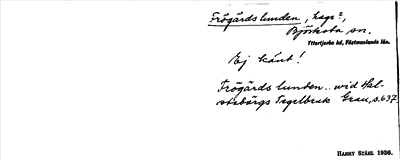 Frögårds lunden, hage?,
Björksta sn.
Yttertjurbo hd, Västmanlands län.
Ej känt!
Frögårds lunden.. wid Hal-
stabärgs Tegelbruk Grau, s. 637.
HARRY STÅHL 1936.